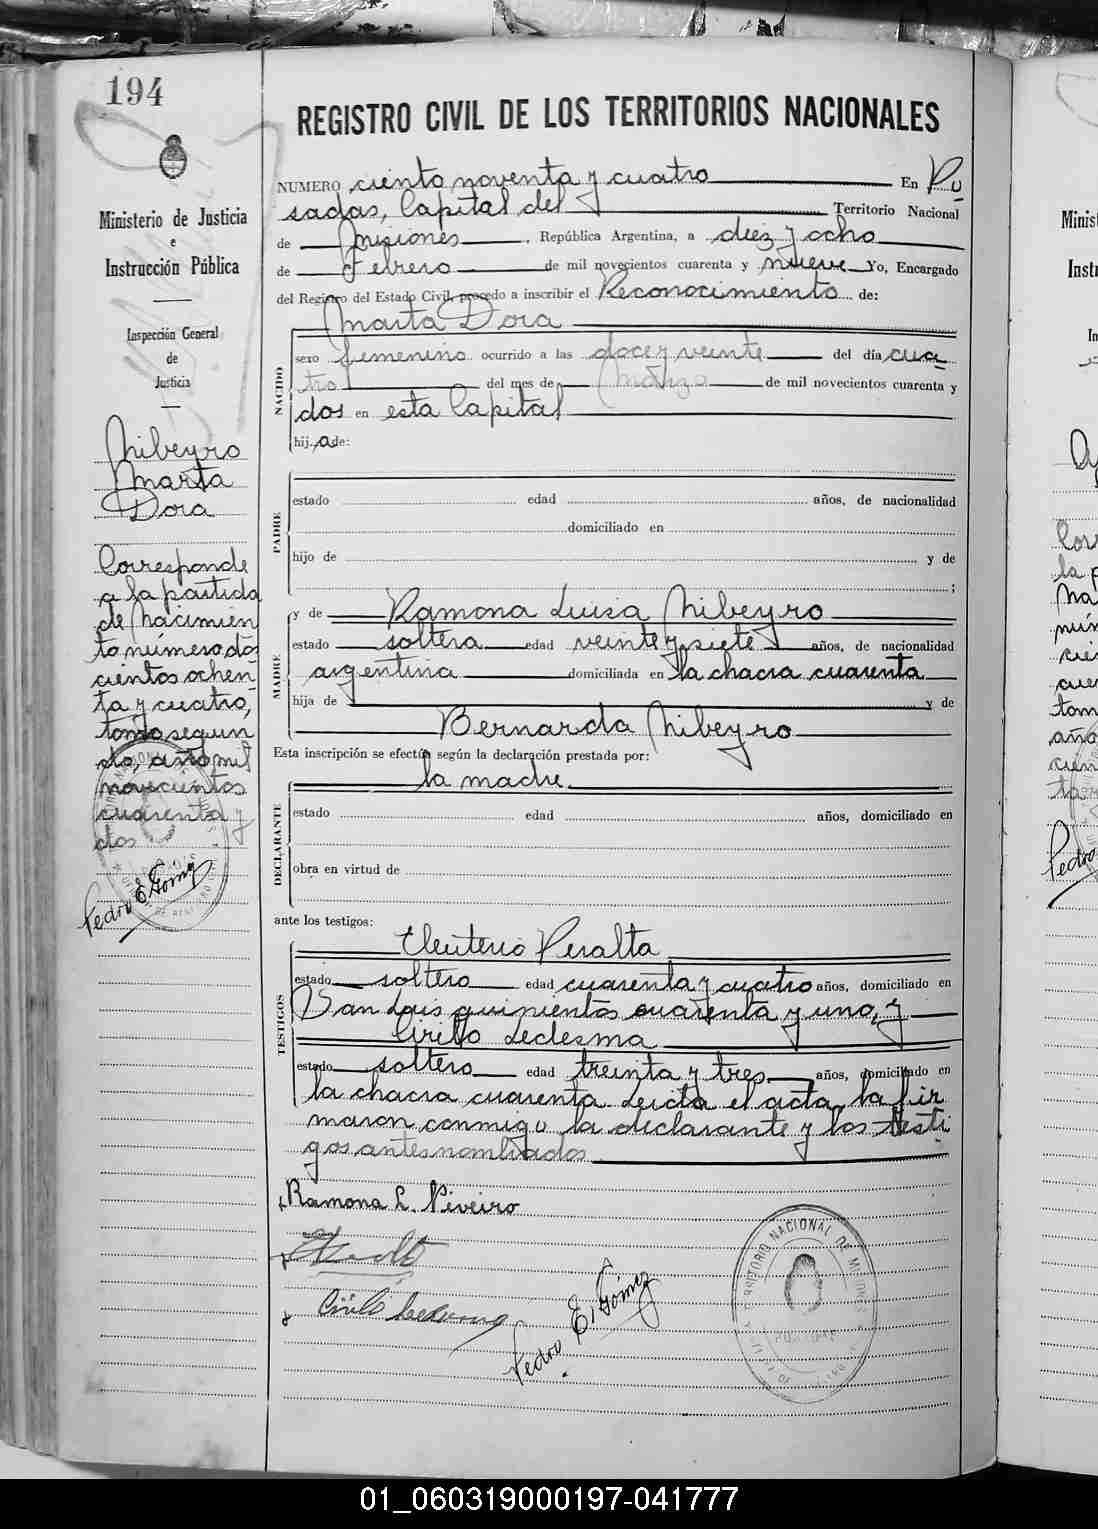 194
Ministerio de Justicia
e
Instrucción Pública
Inspección General
de
Justicia
Nibeyro
Marta
Dora
Corresponde
a la partida
de nacimien
to número dos
cientos ochen
ta y cuatro,
tomo segun
do, año mil
novecientos
cuarenta y
dos
Pedro E. Gómez
REGISTRO CIVIL DE LOS TERRITORIOS NACIONALES
NUMERO ciento noventa y cuatro En Po
sadas, Capital del Territorio Nacional
de Misiones, República Argentina, a diez y ocho
de Febrero de mil novecientos cuarenta y nueve Yo, Encargado
del Registro del Estado Civil, procedo a inscribir el Reconocimiento de:
Marta Dora
NACIDO
sexo femenino ocurrido a las doce y veinte del día cua
tro del mes de marzo de mil novecientos cuarenta y
dos en esta Capital
hij a de:
PADRE
estado edad años, de nacionalidad
domiciliado en
hijo de y de
;
MADRE
y de Ramona Luisa Nibeyro
estado soltera edad veinte y siete años, de nacionalidad
argentina domiciliada en la chacra cuarenta
hija de y de
Bernarda Nibeyro
Esta inscripción se efectúa según la declaración prestada por:
la madre.
DECLARANTE
estado edad años, domiciliado en
obra en virtud de
ante los testigos:
TESTIGOS
Eleuterio Peralta
estado soltero edad cuarenta y cuatro años, domiciliado en
San Luis quinientos cuarenta y uno, y
Cirilo Ledesma
estado soltero edad treinta y tres años, domiciliado en
la chacra cuarenta Leida el acta, la fir
maron conmigo la declarante y los testi
gos antes nombrados
Ramona L. Niveiro
Cirilo Ledesma
Pedro E. Gómez
TERRITORIO NACIONAL DE MISIONES
01_060319000197-041777